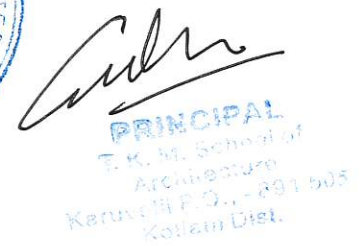 PRINCIPAL
T. K. M. School of
Architecture
Karuvelil P.O., - 691 505
Kollam Dist.